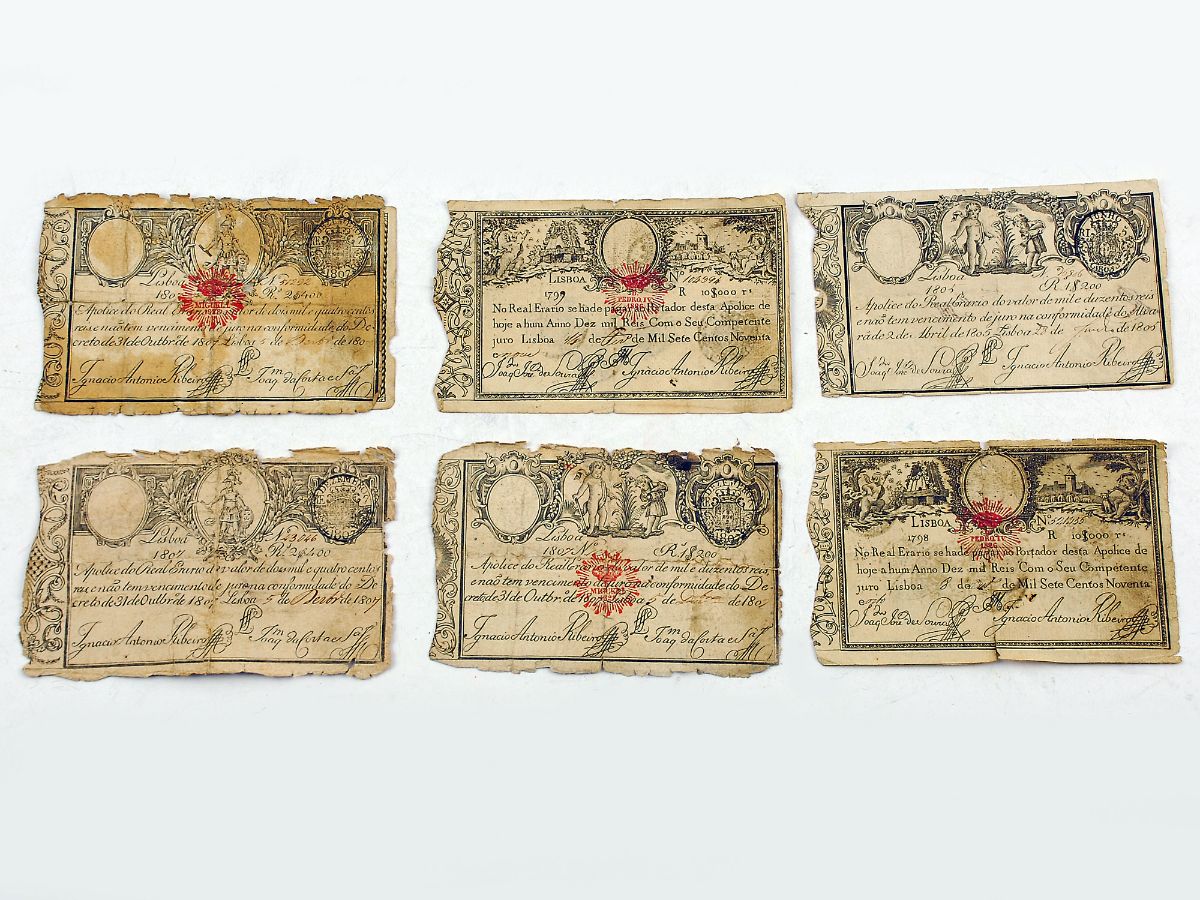 Lisboa N.
180 R. 2$400
MIGUEL I.
1828
Apolice do Real Erario do valor de dois mil e quatro centos
reis e não tem vencimento de juro na conformidade do De
creto de 31 de Outbr.º de 1807 Lisboa 5 de de 1807
Ignacio Antonio Ribeiro Joaq.m da Costa e Sa
LISBOA Nº
1799 R 10$000 rˢ
PEDRO IV
1826
No Real Erario se hade pagar ao Portador desta Apolice de
hoje a hum Anno Dez mil Reis Com o Seu Competente
juro Lisboa de de Mil Sete Centos Noventa
e nove
Joaq. Joze de Souza Ignacio Antonio Ribeiro
ERARIO
1803
Lisboa
1805 R. 1$200
Apolice do Real Erario do valor de mil e duzentos reis
e não tem vencimento de juro na conformidade do Alva
rá de 2 de Abril de 1805 Lisboa 28 de de 1805
Joaq. Joze de Souza Ignacio Antonio Ribeiro
Lisboa N.
1807 R. 2$400
Apolice do Real Erario do valor de dois mil e quatro centos
reis e não tem vencimento de juro na conformidade do De
creto de 31 de Outbr.º de 1807 Lisboa 5 de Dezbr.º de 1807
Ignacio Antonio Ribeiro Joaq.m da Costa e Sa
Lisboa
1807 N. R. 1$200
Apolice do Real Erario do valor de mil e duzentos reis
e não tem vencimento de juro na conformidade do De
creto de 31 de Outbr.º de 1807 Lisboa 5 de de 1807
MIGUEL I.
Ignacio Antonio Ribeiro Joaq.m da Costa e Sa
LISBOA Nº
1798 R 10$000 rˢ
PEDRO IV
1826
No Real Erario se hade pagar ao Portador desta Apolice de
hoje a hum Anno Dez mil Reis Com o Seu Competente
juro Lisboa de de Mil Sete Centos Noventa
e
Joaq. Joze de Souza Ignacio Antonio Ribeiro